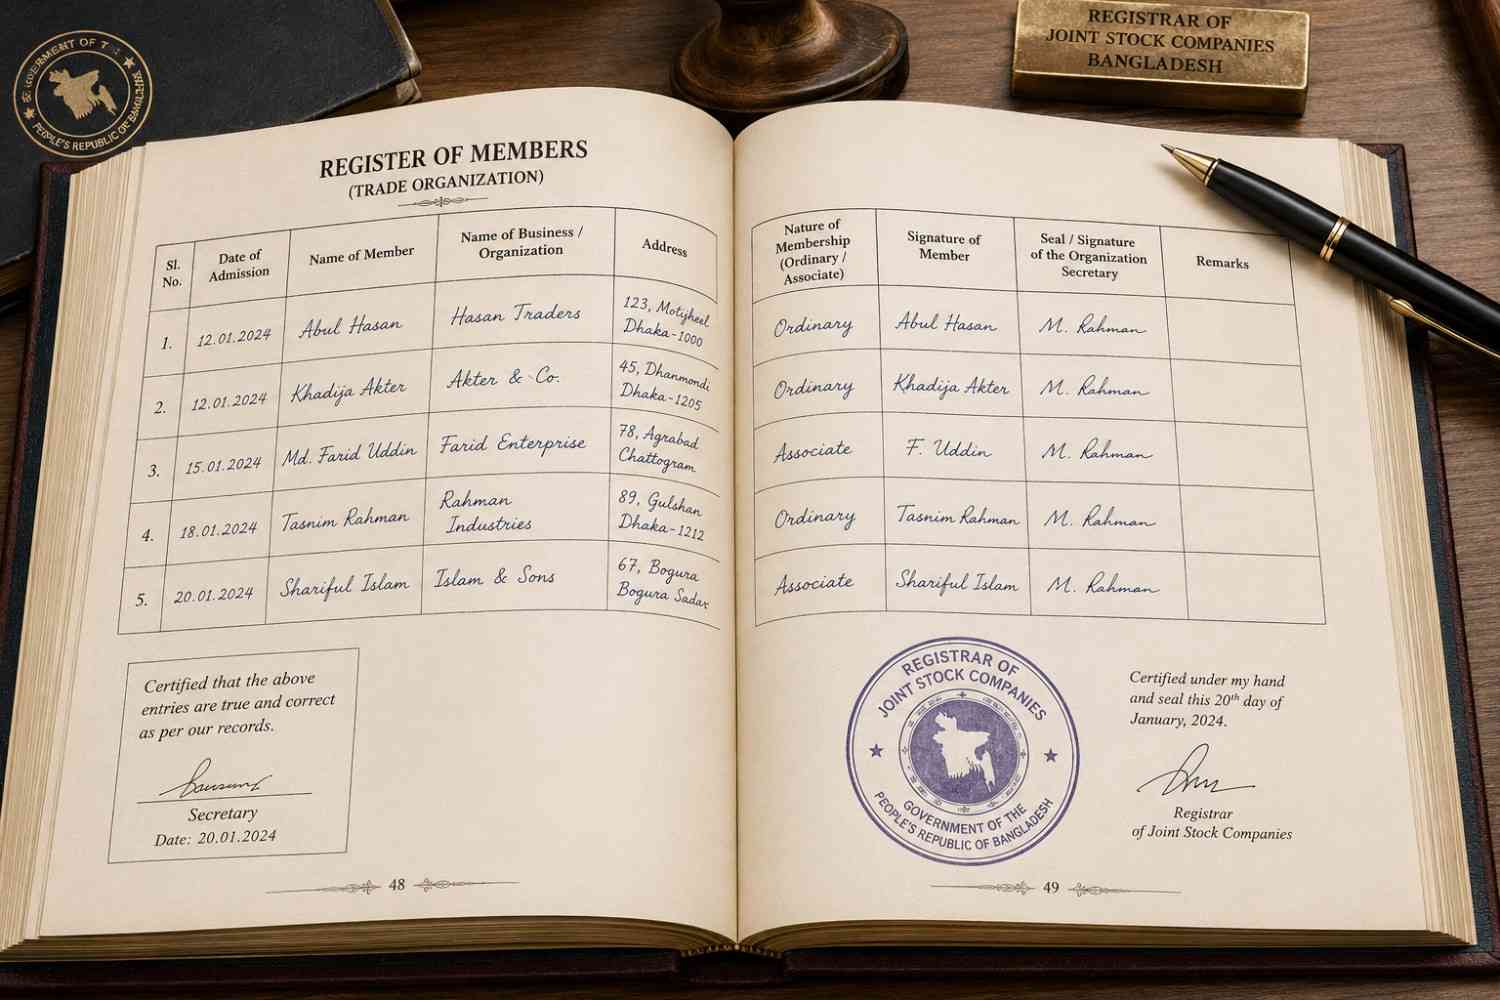 GOVERNMENT OF T
PEOPLE'S REPUBLIC OF BANGLADESH
REGISTRAR OF
JOINT STOCK COMPANIES
BANGLADESH
REGISTER OF MEMBERS
(TRADE ORGANIZATION)
Sl. No.
Date of Admission
Name of Member
Name of Business / Organization
Address
Nature of Membership (Ordinary / Associate)
Signature of Member
Seal / Signature of the Organization Secretary
Remarks
1. 12.01.2024 Abul Hasan Hasan Traders 123, Motijheel Dhaka-1000 Ordinary Abul Hasan M. Rahman
2. 12.01.2024 Khadija Akter Akter & Co. 45, Dhanmondi Dhaka-1205 Ordinary Khadija Akter M. Rahman
3. 15.01.2024 Md. Farid Uddin Farid Enterprise 78, Agrabad Chattogram Associate F. Uddin M. Rahman
4. 18.01.2024 Tasnim Rahman Rahman Industries 89, Gulshan Dhaka-1212 Ordinary Tasnim Rahman M. Rahman
5. 20.01.2024 Shariful Islam Islam & Sons 67, Bogura Bogura Sadar Associate Shariful Islam M. Rahman
Certified that the above
entries are true and correct
as per our records.
Secretary
Date: 20.01.2024
48
REGISTRAR OF
JOINT STOCK COMPANIES
GOVERNMENT OF THE
PEOPLE'S REPUBLIC OF BANGLADESH
Certified under my hand
and seal this 20th day of
January, 2024.
Registrar
of Joint Stock Companies
49